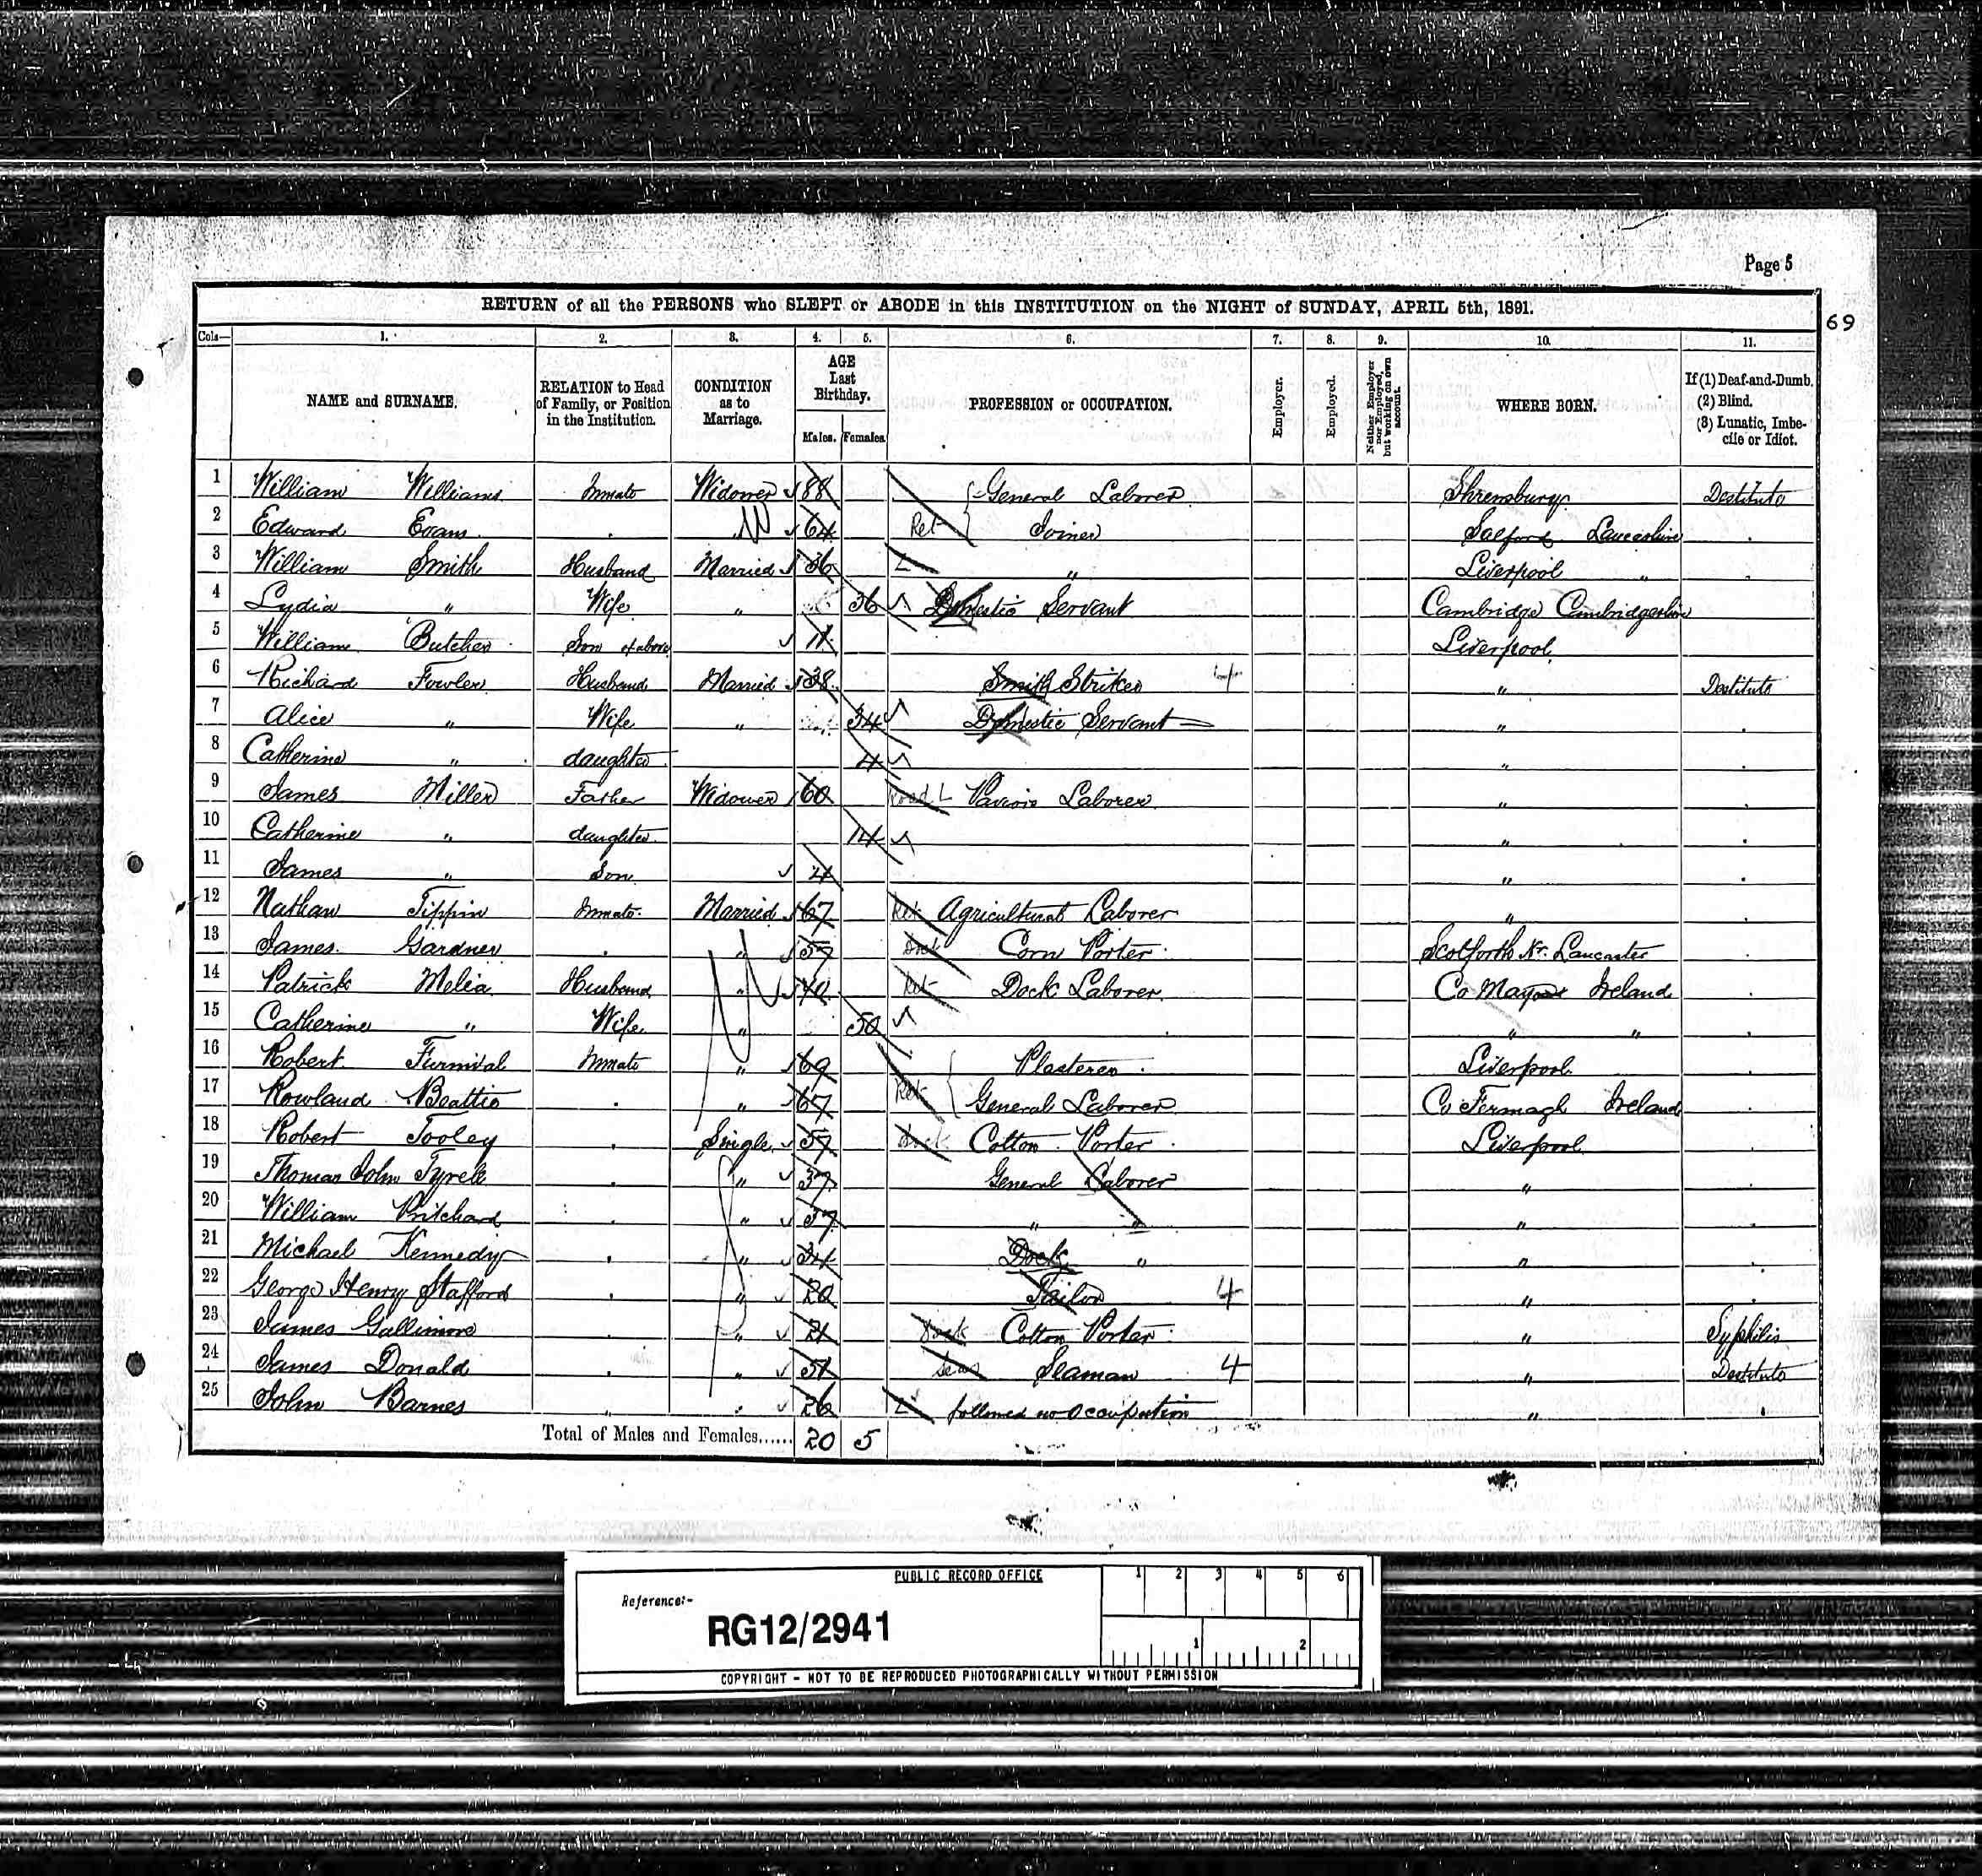 Page 5
RETURN of all the PERSONS who SLEPT or ABODE in this INSTITUTION on the NIGHT of SUNDAY, APRIL 5th, 1891.
69
Cols— 1. 2. 3. 4. 5. 6. 7. 8. 9. 10. 11.
NAME and SURNAME. RELATION to Head of Family, or Position in the Institution. CONDITION as to Marriage. AGE Last Birthday. Males. Females. PROFESSION or OCCUPATION. Employer. Employed. Neither Employer nor Employed, but working on own account. WHERE BORN. If (1) Deaf-and-Dumb. (2) Blind. (3) Lunatic, Imbecile or Idiot.
1 William Williams Inmate Widower 88 General Laborer Shrewsbury Destitute
2 Edward Evans " W 64 Ret Joiner Salford Lancashire "
3 William Smith Husband Married 36 L " Liverpool " "
4 Lydia " Wife " 36 Domestic Servant Cambridge Cambridgeshire
5 William Butcher Son of above 11 Liverpool
6 Richard Fowler Husband Married 38 Smith Striker 4 " Destitute
7 Alice " Wife " 34 Domestic Servant " "
8 Catherine " daughter 4 " "
9 James Miller Father Widower 60 Road L Pavior Laborer " "
10 Catherine " daughter 14 " "
11 James " Son 4 " "
12 Nathan Tippin Inmate Married 67 Ret Agricultural Laborer " "
13 James Gardner " " 57 Dock Corn Porter Scotforth Nr. Lancaster "
14 Patrick Melia Husband " Ret Dock Laborer Co Mayo Ireland "
15 Catherine " Wife " 50 " " "
16 Robert Furnival Inmate " 69 Plasterer Liverpool
17 Rowland Beattie " " 67 Ret General Laborer Co Fermagh Ireland "
18 Robert Tooley " Single 57 Dock Cotton Porter Liverpool "
19 Thomas John Tyrell " " 37 General Laborer " "
20 William Pritchard " " 37 " " " "
21 Michael Kennedy " " 34 Dock " " "
22 George Henry Stafford " " 20 Tailor 4 " "
23 James Gallimore " " 21 Dock Cotton Porter " Syphilis
24 James Donald " " 51 Seas Seaman 4 " Destitute
25 John Barnes " " 26 L followed no Occupation " "
Total of Males and Females...... 20 5
PUBLIC RECORD OFFICE
1 2 3 4 5 6
Reference:-
RG12/2941
1 2
COPYRIGHT - NOT TO BE REPRODUCED PHOTOGRAPHICALLY WITHOUT PERMISSION